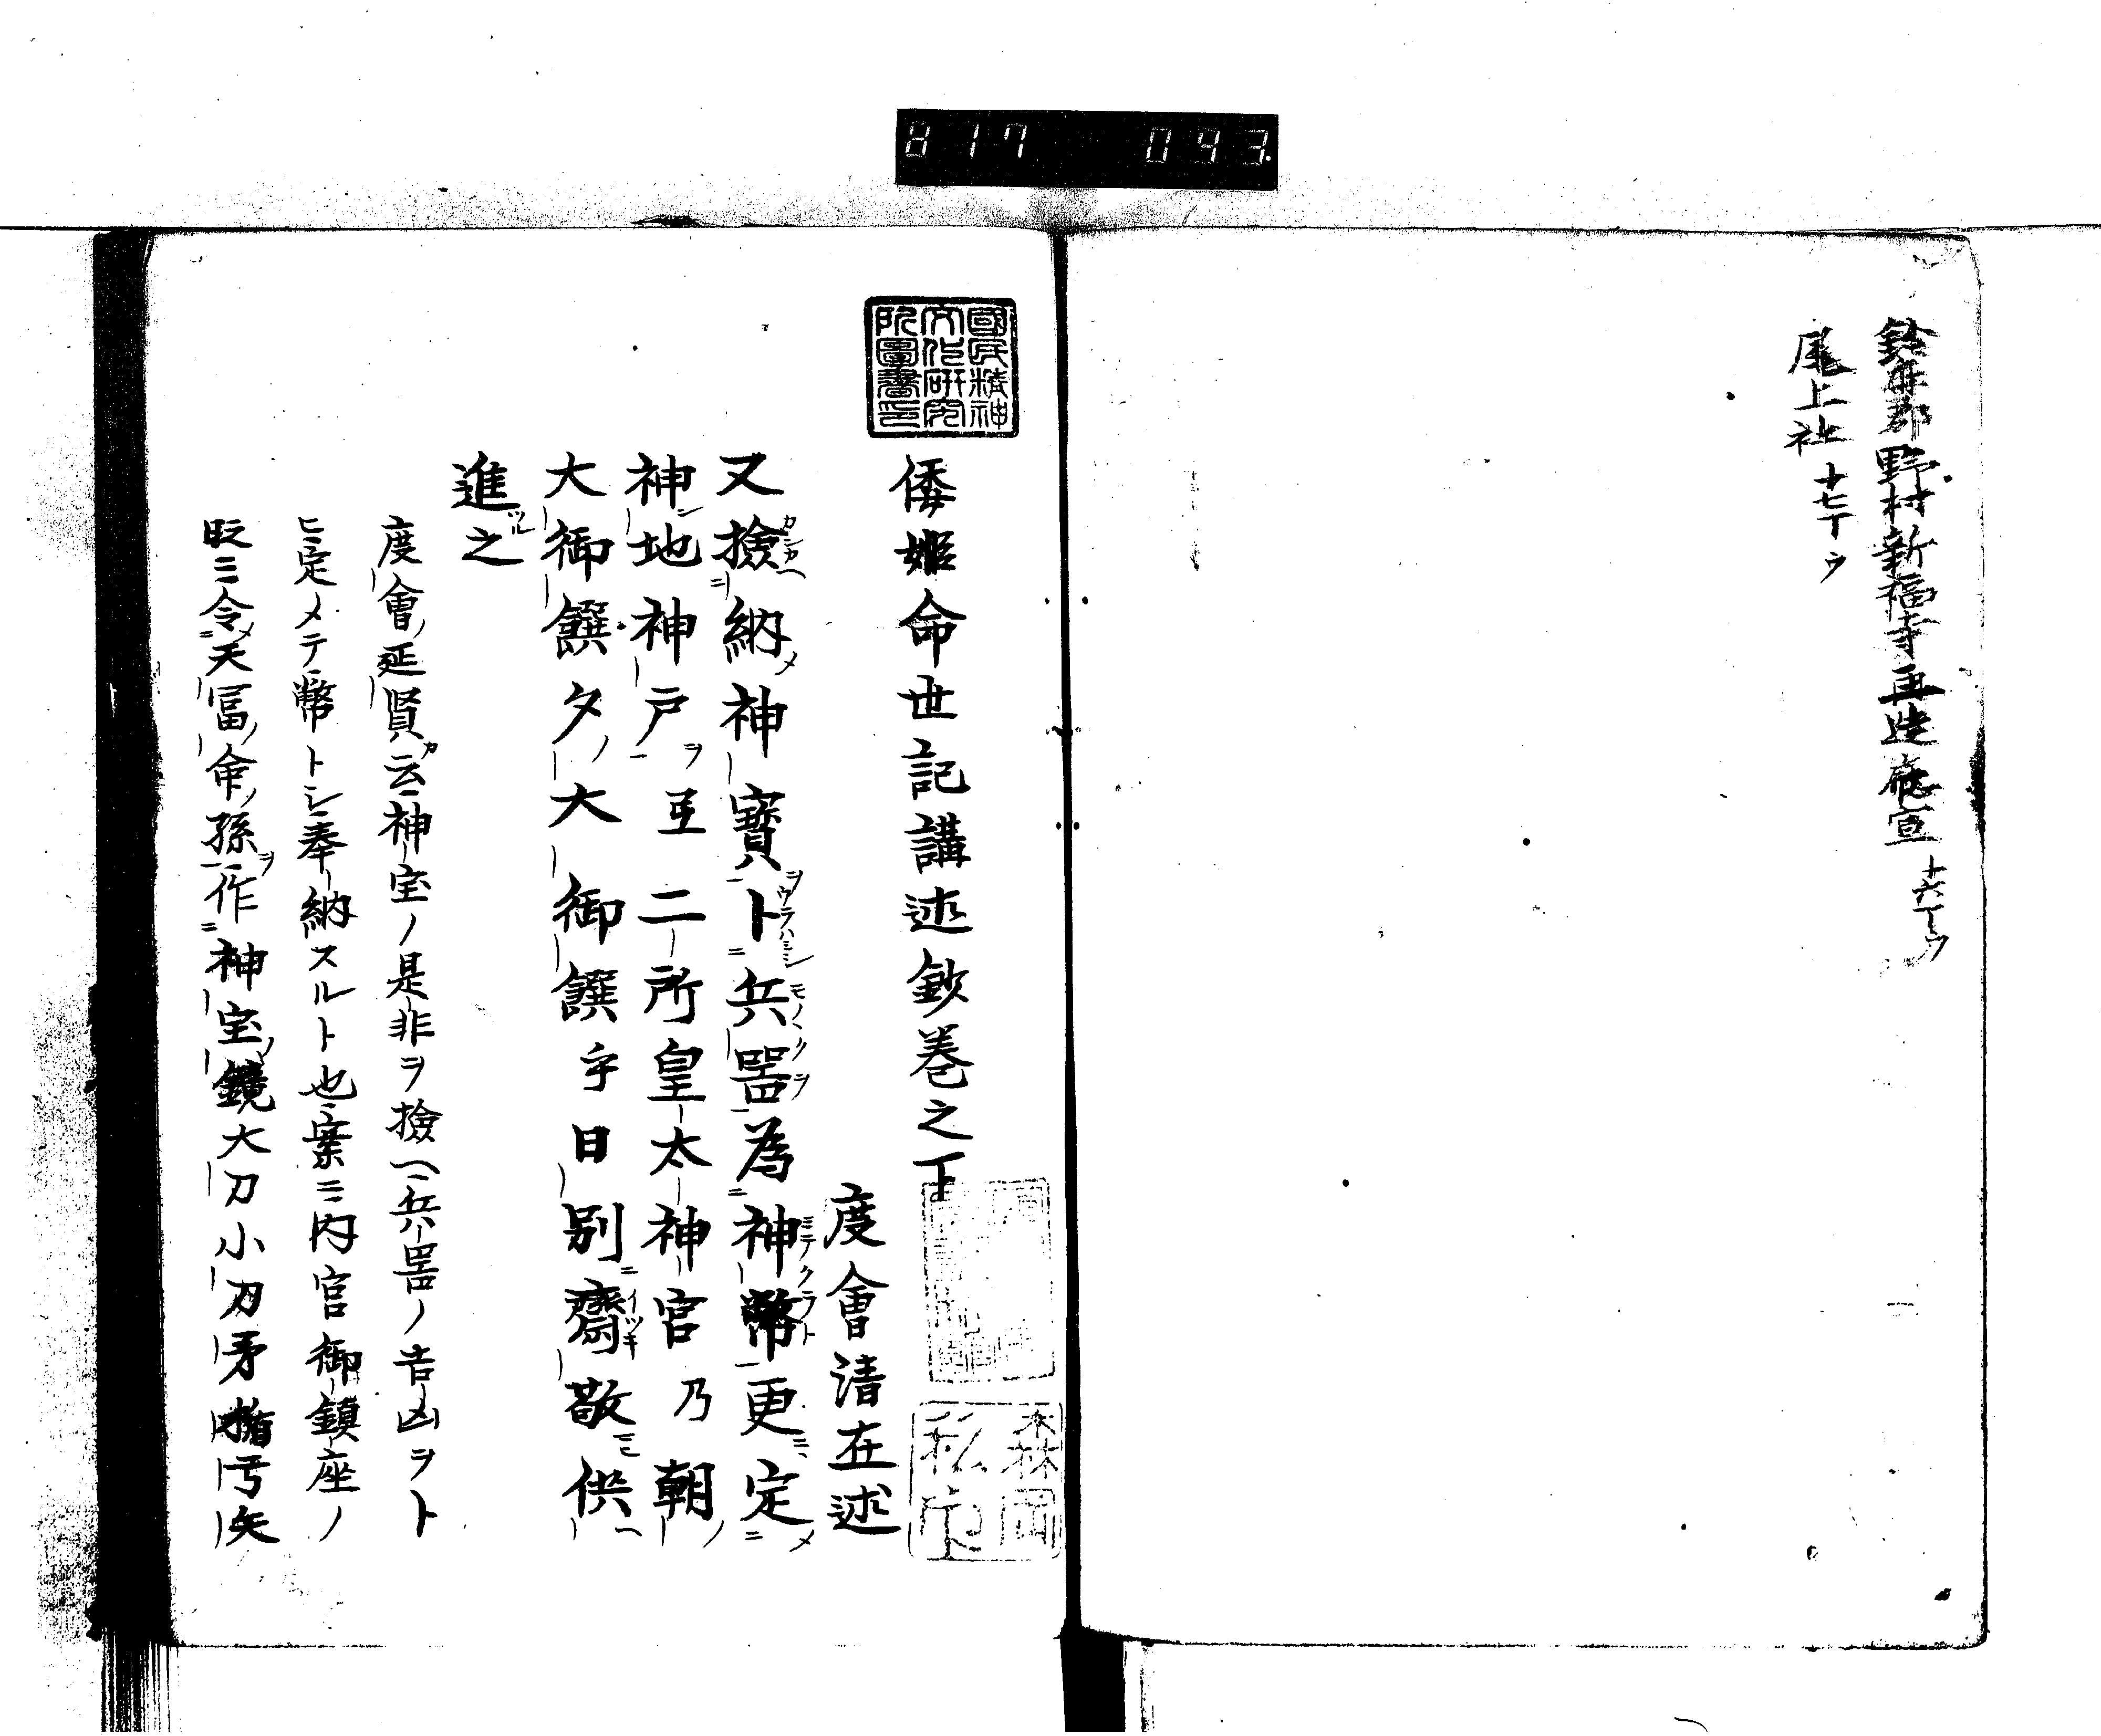 817 093
鈴鹿郡野村新福寺再造應宣 十六丁ウ
尾上社 十七丁ウ
國民精神
文化研究
所圖書印
倭姫命世記講述鈔巻之下
度會清在述
森岡
私印
又撿納神寶卜兵噐為神幣更定
神地神戸弖二所皇太神宮乃朝
大御饌夕大御饌乎日別齋敬供
進之
度會延賢云神宝ノ是非ヲ撿ヘ兵噐ノ吉凶ヲト
ヒ定メテ幣トシ奉納スルト也案ニ内宮御鎮座ノ
時ニ令天冨命孫作神宝鏡大刀小刀矛楯弓矢